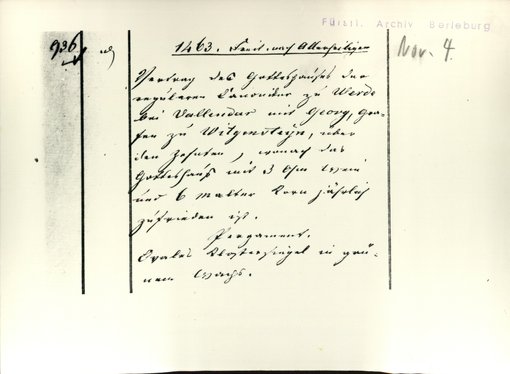 Fürstl. Archiv Berleburg
936
1463. Freit. nach Allerheiligen
Nov. 4.
Vertrag des Gotteshauses der
regulären Canoniker zu Werde
bei Vallendar mit Georg, Gra-
fen zu Witgensteyn, über
den Zehnten, wonach das
Gotteshaus mit 3 Ohm Wein
und 6 Malter Korn jährlich
zufrieden ist.
Pergament.
Ovales Klostersiegel in grü-
nem Wachs.